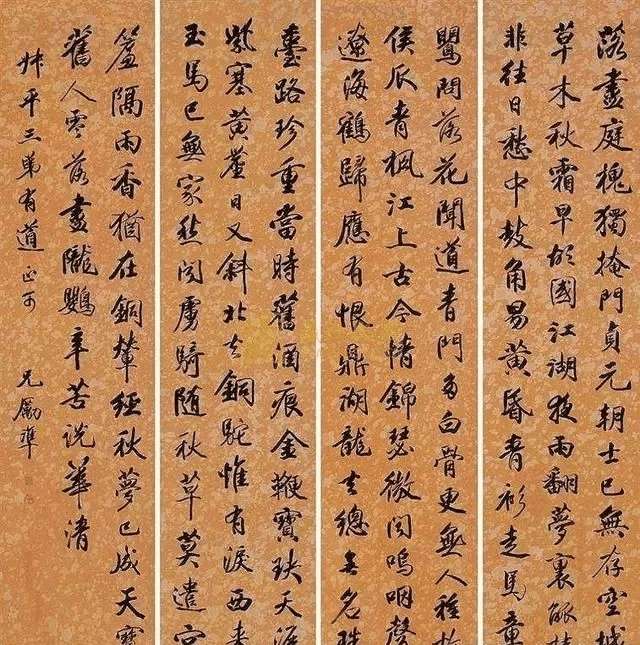 落盡庭槐獨掩門貞元朝士已無存空城
草木秋霜早故國江湖夜雨翻夢裏觚棱
非往日愁中鼓角易黃昏青衫走馬章
鸎問落花聞道青門多白骨更無人種故
侯瓜青楓江上古今情錦瑟微聞嗚咽聲
遼海鶴歸應有恨鼎湖龍去總無名珠
臺路珍重當時舊酒痕金鞭寶玦天涯
紫塞黃蘆日又斜北去銅駝惟有淚西來
玉馬已無家愁聞虜騎隨秋草莫遣宮
簾隔雨香猶在銅輦經秋夢已成天寶
舊人零落盡隴鸚辛苦說華清
叔平三弟有道正可
兄勵準